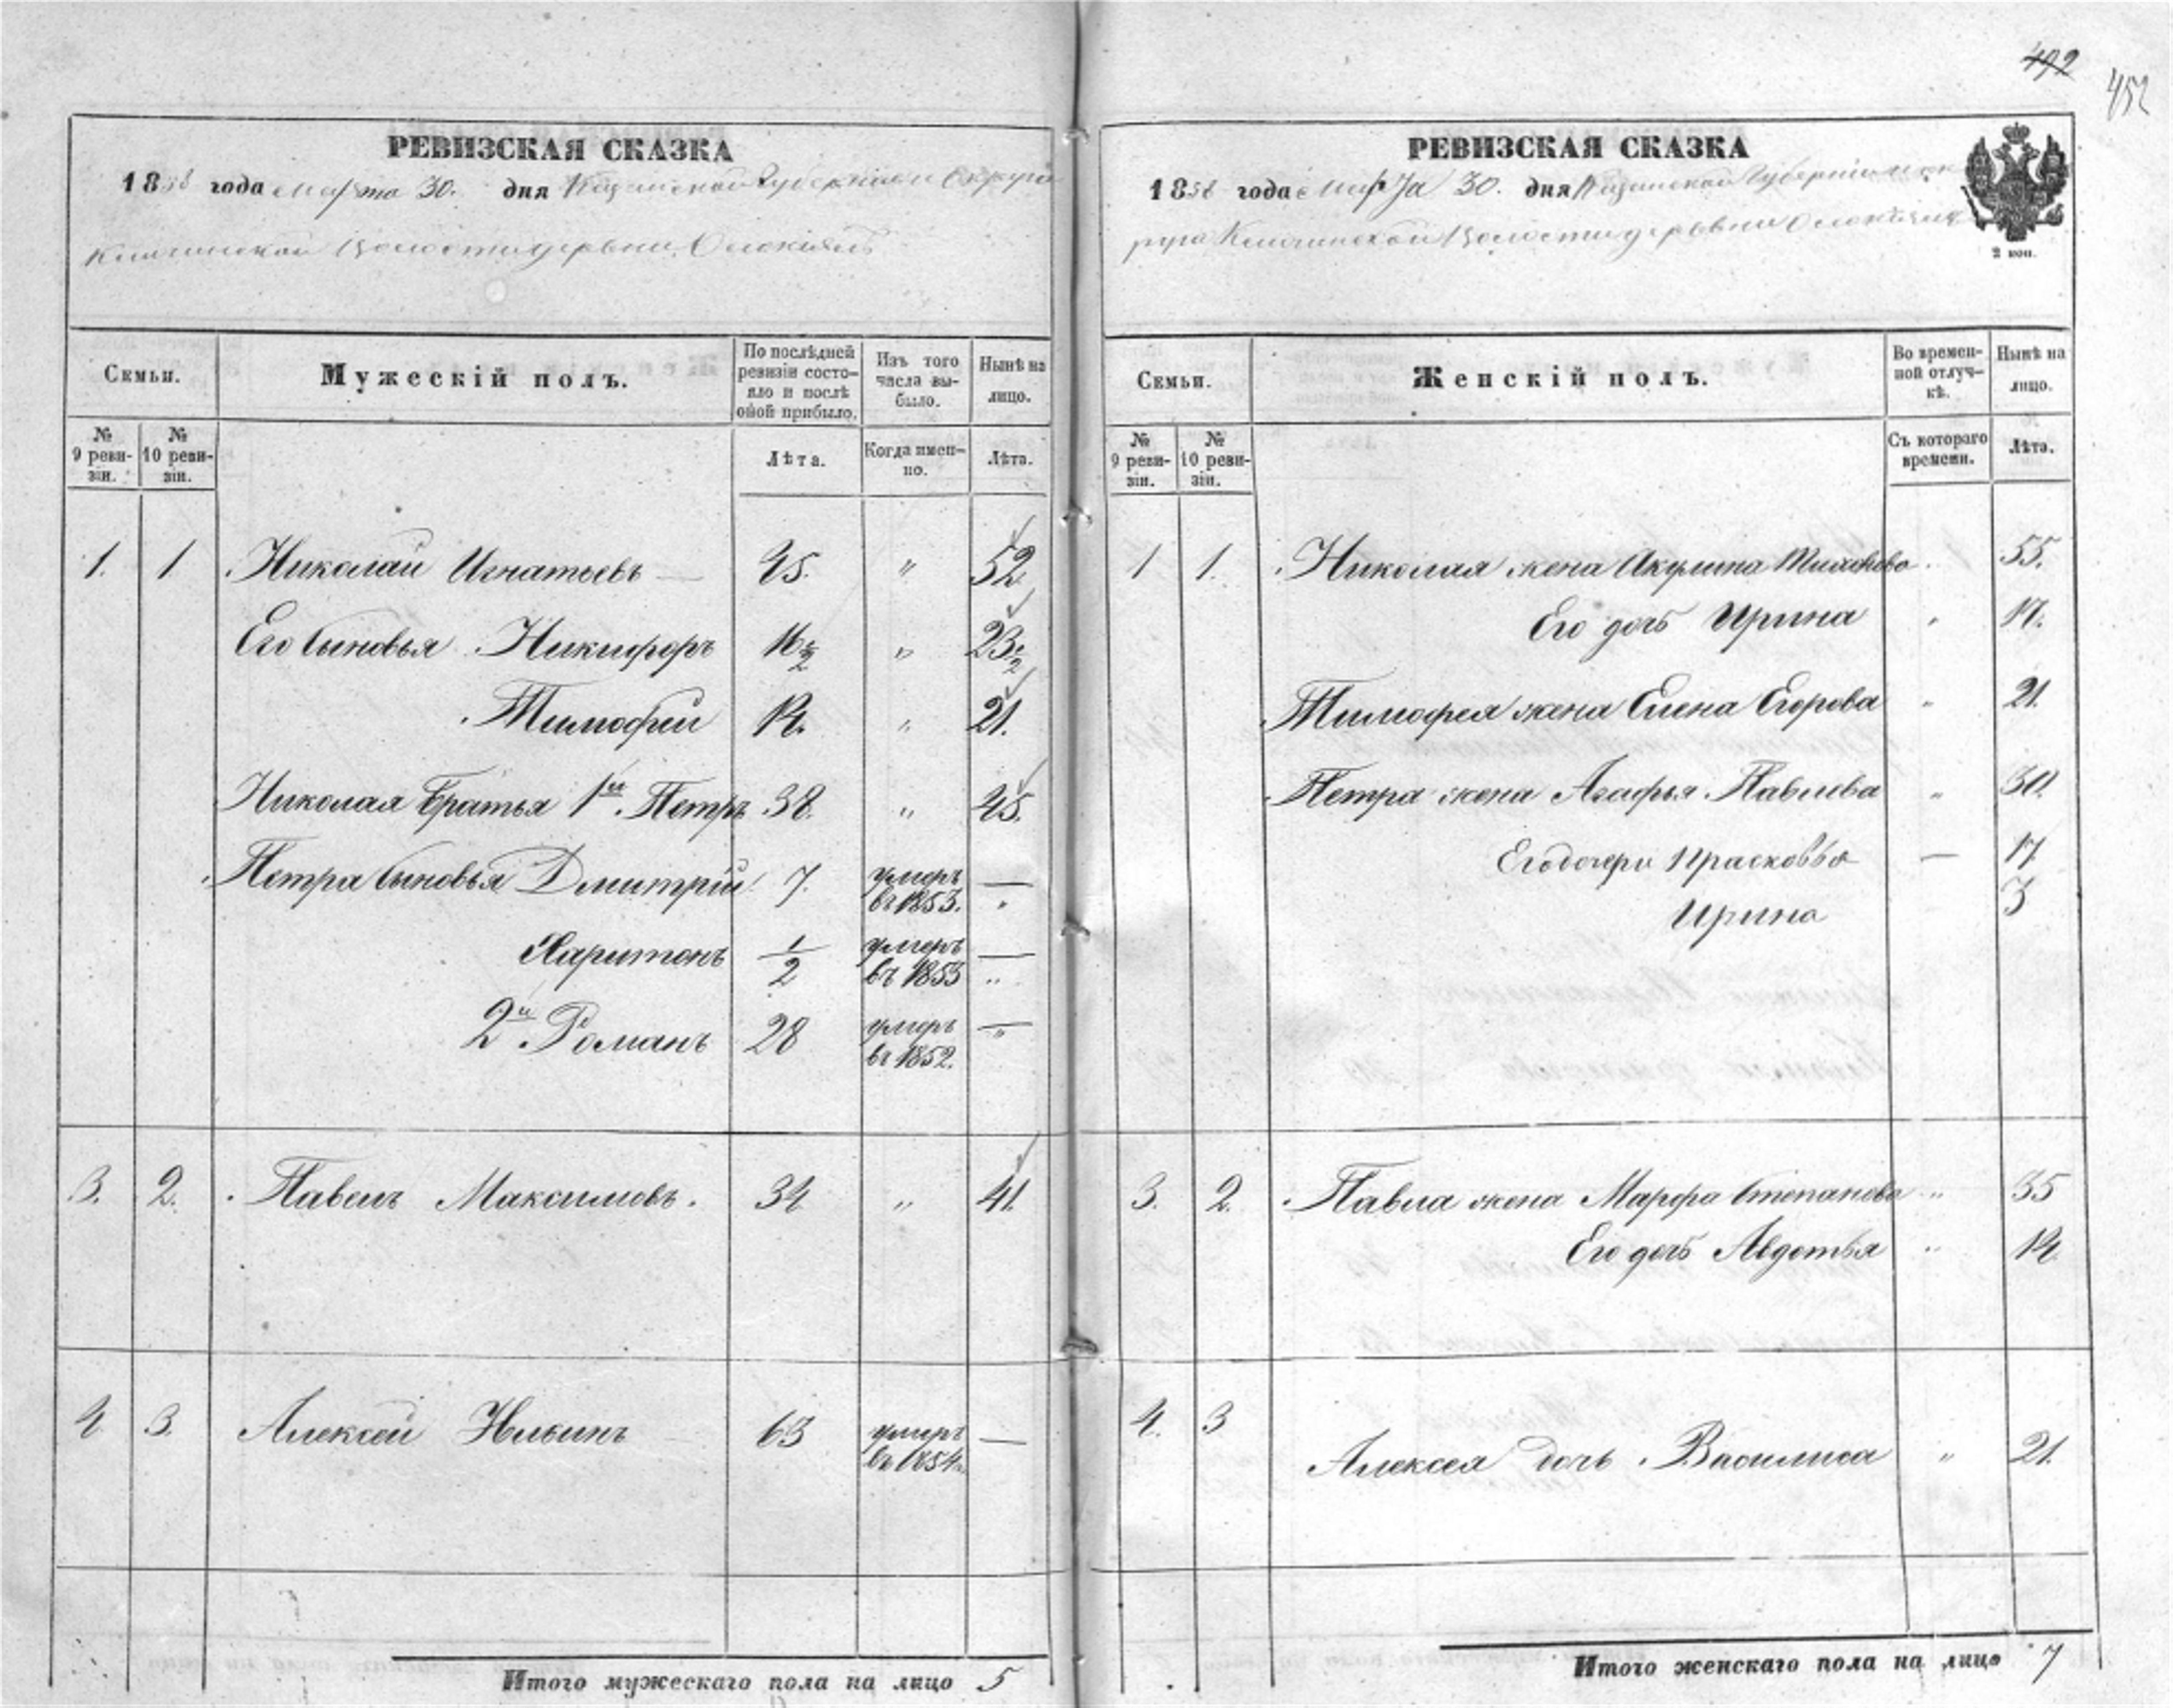 492
452
РЕВИЗСКАЯ СКАЗКА
1858 года Марта 30. дня Казанской Губернии Округа
волости деревни
Семьи.
Мужескій полъ.
По послѣдней ревизіи состояло и послѣ оной прибыло.
Изъ того числа выбыло.
Нынѣ на лицо.
№ 9 ревизіи.
№ 10 ревизіи.
Лѣта.
Когда именно.
Лѣта.
1. 1 Николай Игнатьевъ 45. " 52
Его сыновья Никифоръ 16 1/2 " 23 1/2
Тимофей 14. " 21.
Николая братья 1й Петръ 38. " 45.
Петра сыновья Дмитрій 7. умеръ въ 1853. —
Харитонъ 1/2 умеръ въ 1853 —
2й Романъ 28 умеръ въ 1852. —
3. 2. Павелъ Максимовъ. 34 " 41.
4 3. Алексей Ильинъ 63 умеръ въ 1854 —
Итого мужескаго пола на лицо 5
РЕВИЗСКАЯ СКАЗКА
1858 года Марта 30. дня Казанской Губерніи Ок
руга волости деревни
2 коп.
Семьи.
Женскій полъ.
Во временной отлучкѣ.
Нынѣ на лицо.
№ 9 ревизіи.
№ 10 ревизіи.
Съ котораго времени.
Лѣта.
1 1. Николая жена Акулина 55.
Его дочь Ирина " 17.
Тимофея жена Елена Егорова " 21.
Петра жена Агафья Павлова " 30.
Его дочери Прасковья — 17
Ирина 3
3. 2. Павла жена Марфа Степанова " 35
Его дочь Авдотья " 14
4. 3 Алексея дочь Василиса " 21.
Итого женскаго пола на лицо 7